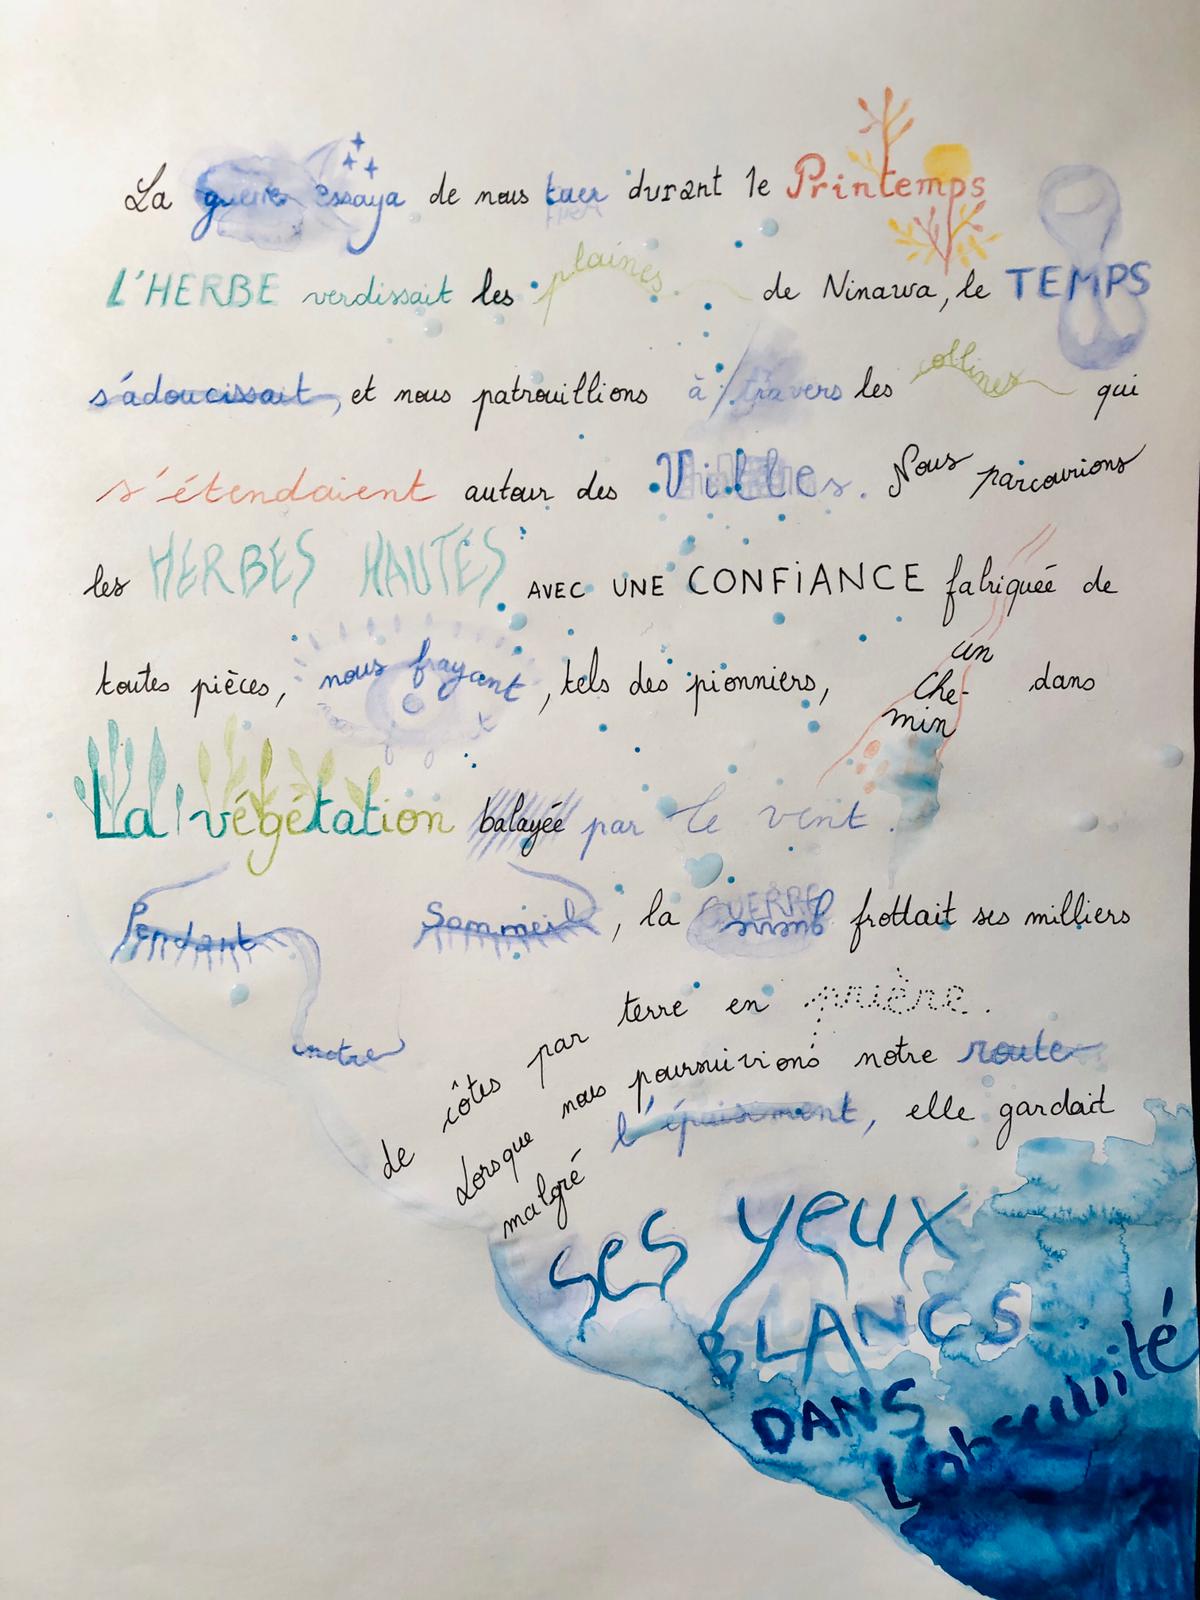 La guerre essaya de nous tuer durant le Printemps
L'HERBE verdissait les plaines de Ninawa, le TEMPS
s'adoucissait, et nous patrouillions à travers les collines qui
s'étendaient autour des Villes. Nous parcourions
les HERBES HAUTES AVEC UNE CONFiANCE fabriquée de
toutes pièces, nous frayant, tels des pionniers, un che-min dans
La végétation balayée par le vent.
Pendant notre Sommeil, la GUERRE frottait ses milliers
de côtes par terre en prière.
Lorsque nous poursuivions notre route
malgré l'épuisement, elle gardait
ses yeux
BLANCS
DANS
L'obscurité